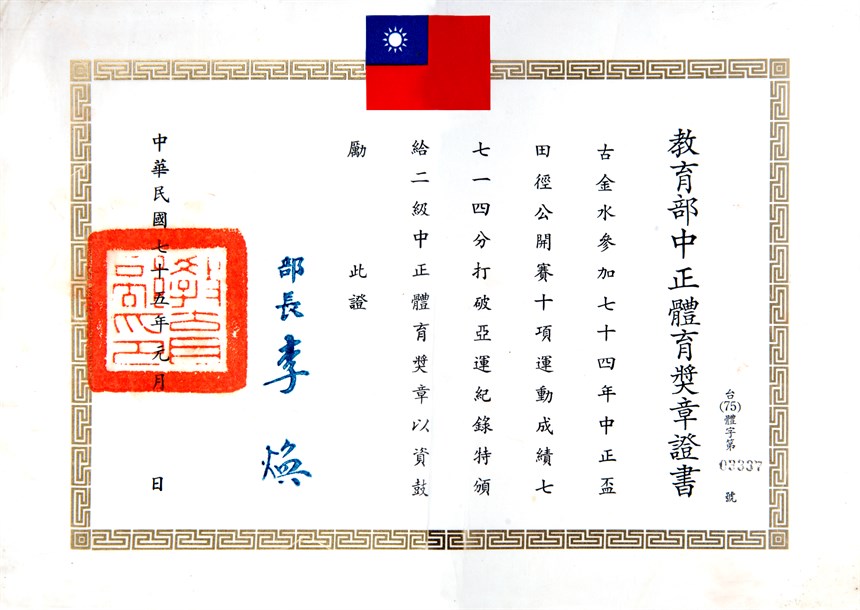 教育部中正體育獎章證書
台(75)體字第03337號
古金水參加七十四年中正盃
田徑公開賽十項運動成績七
七一四分打破亞運紀錄特頒
給二級中正體育獎章以資鼓
勵 此證
部長李煥
中華民國七十五年元月 日
教育部印